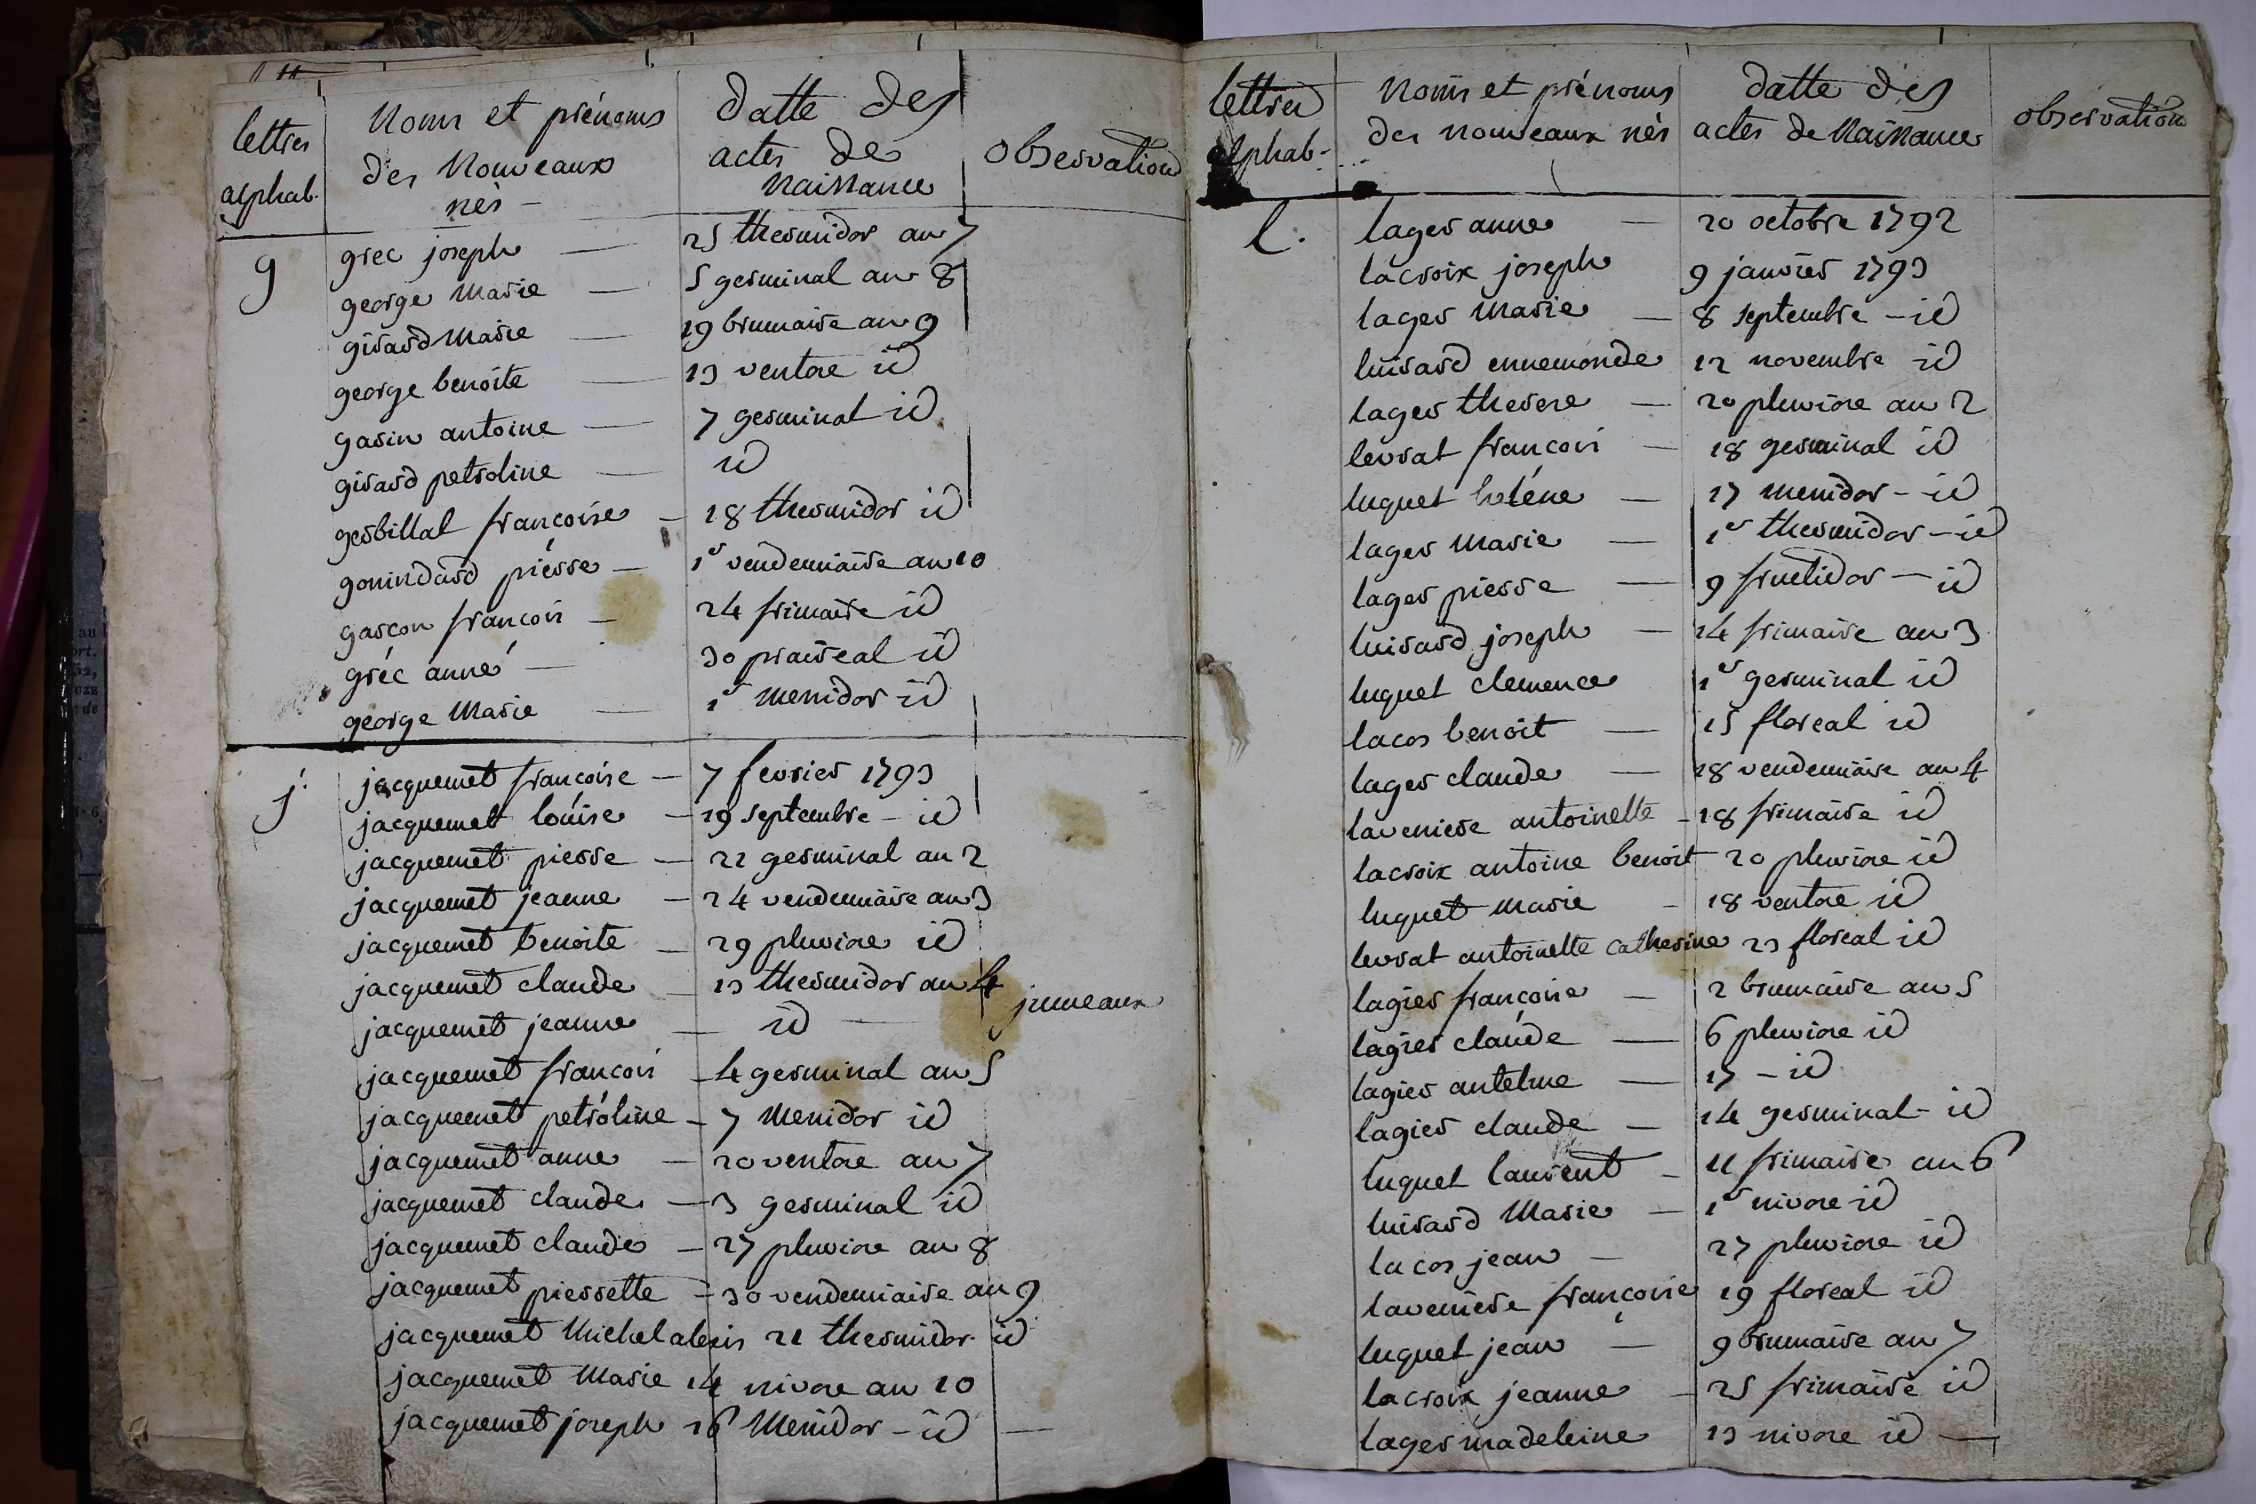 lettres
alphab.
Noms et prénoms
des Nouveaux
nés -
datte des
actes de
Naissance
observation
g grec joseph — 25 thermidor an 7
george Marie — 5 germinal an 8
girard Marie — 19 brumaire an 9
george benoite — 13 ventose id
garin antoine — 7 germinal id
girard petroline — id
gerbillat francoise — 18 thermidor id
gonindard pierre — 1er vendemiaire an 10
garcon francois — 24 frimaire id
gréc anné — 30 prairéal id
george Marie — 1er Messidor id
j jacquemet francoise — 7 fevrier 1793
jacquemet loúise — 19 septembre - id
jacquemet pierre — 22 germinal an 2
jacquemet jeanne — 24 vendemiaire an 3
jacquemet benoite — 29 pluviose id
jacquemet claude — 13 thermidor an 4
jacquemet jeanne — id — jumeaux
jacquemet francois — 4 germinal an 5
jacquemet petroline — 7 Messidor id
jacquemet anne — 20 ventose an 7
jacquemet claude — 3 germinal id
jacquemet claude — 27 pluviose an 8
jacquemet pierrette — 30 vendemiaire an 9
jacquemet Michel alexis 22 thermidor id
jacquemet Marie 14 nivose an 10
jacquemet joseph 26 Messidor - id —
lettres
alphab-
Noms et prénoms
des nouveaux nés
datte des
actes de Naissance
observation
l. lager anne — 20 octobre 1792
lacroix joseph 9 janvier 1793
lager Marie — 8 septembre - id
luisard ennemonde 12 novembre id
lager therese — 20 pluviose an 2
levrat francois — 18 germinal id
luquet heléne — 17 messidor - id
lager Marie — 1er thermidor - id
lager pierre — 9 fructidor - id
luisard joseph — 14 frimaire an 3
luquet clemence 1er germinal id
lacos benoit — 15 floreal id
lager claude — 18 vendemiaire an 4
laveniere antoinette - 18 frimaire id
lacroix antoine benoit 20 pluviose id
luquet marie - 18 ventose id
levrat antoinette catherine 23 floreal id
lagier francoise — 2 brumaire an 5
lagier claúde — 6 pluviose id
lagier antelme — 17 - id
lagier claude — 14 germinal - id
luquet laurent - 11 frimaire an 6
luisard Marie — 1er nivose id
lacos jean — 27 pluviose id
laveniere francoise 19 floreal id
luquet jean — 9 brumaire an 7
lacroix jeanne - 25 frimaire id
lager madeleine 13 nivose id —